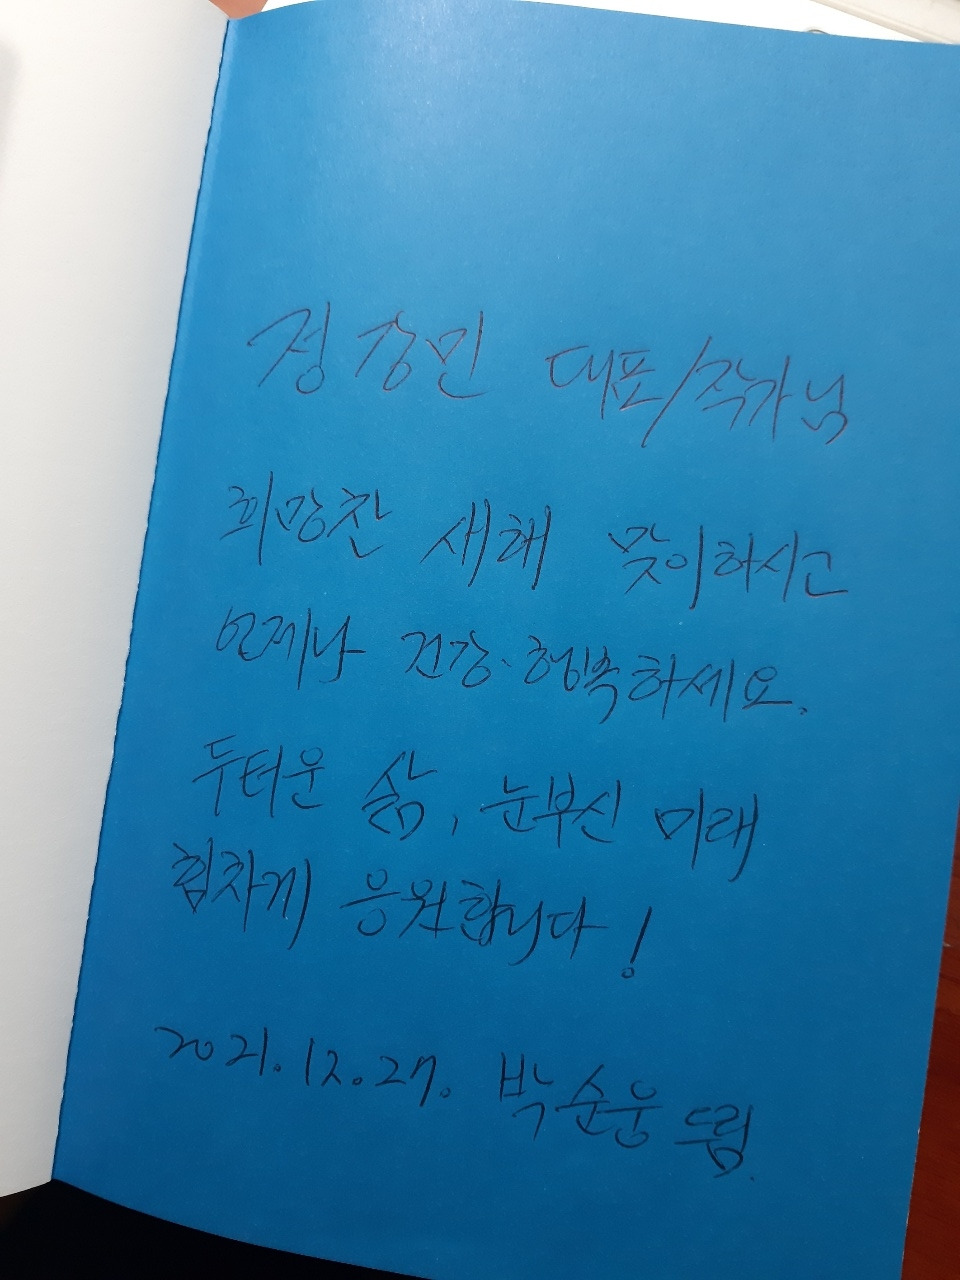 정강민 대표/작가님
희망찬 새해 맞이하시고
언제나 건강·행복하세요.
두터운 삶, 눈부신 미래
힘차게 응원합니다!
2021.12.27. 박순웅 드림.